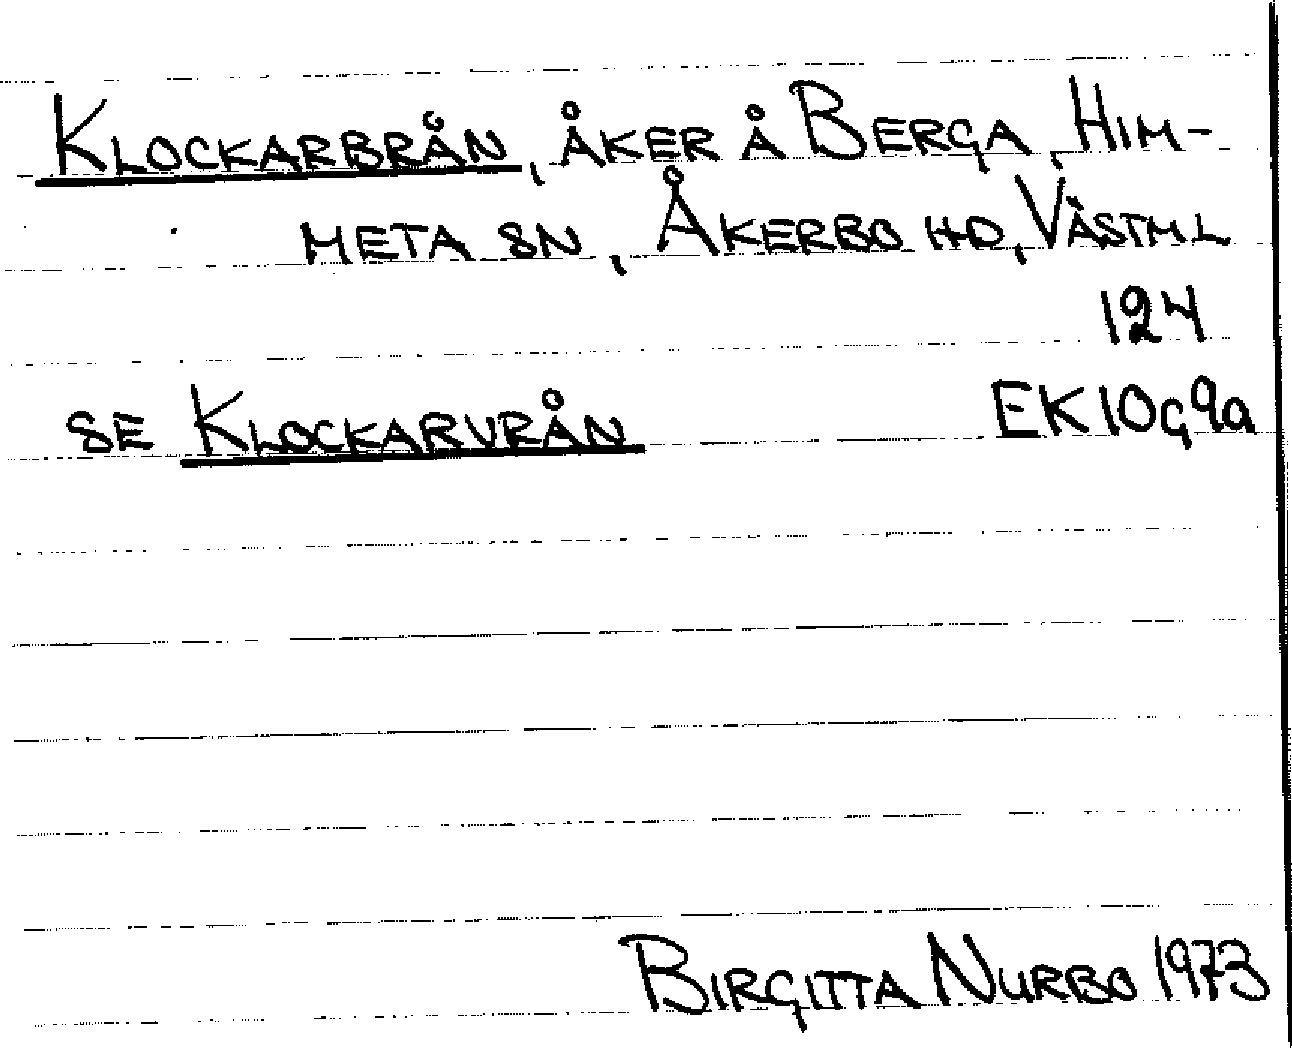 KLOCKARBRÅN, ÅKER Å BERGA, HIM-
META SN, ÅKERBO HD, VÄSTML
124
SE KLOCKARVRÅN EK10G9a
BIRGITTA NURBO 1973